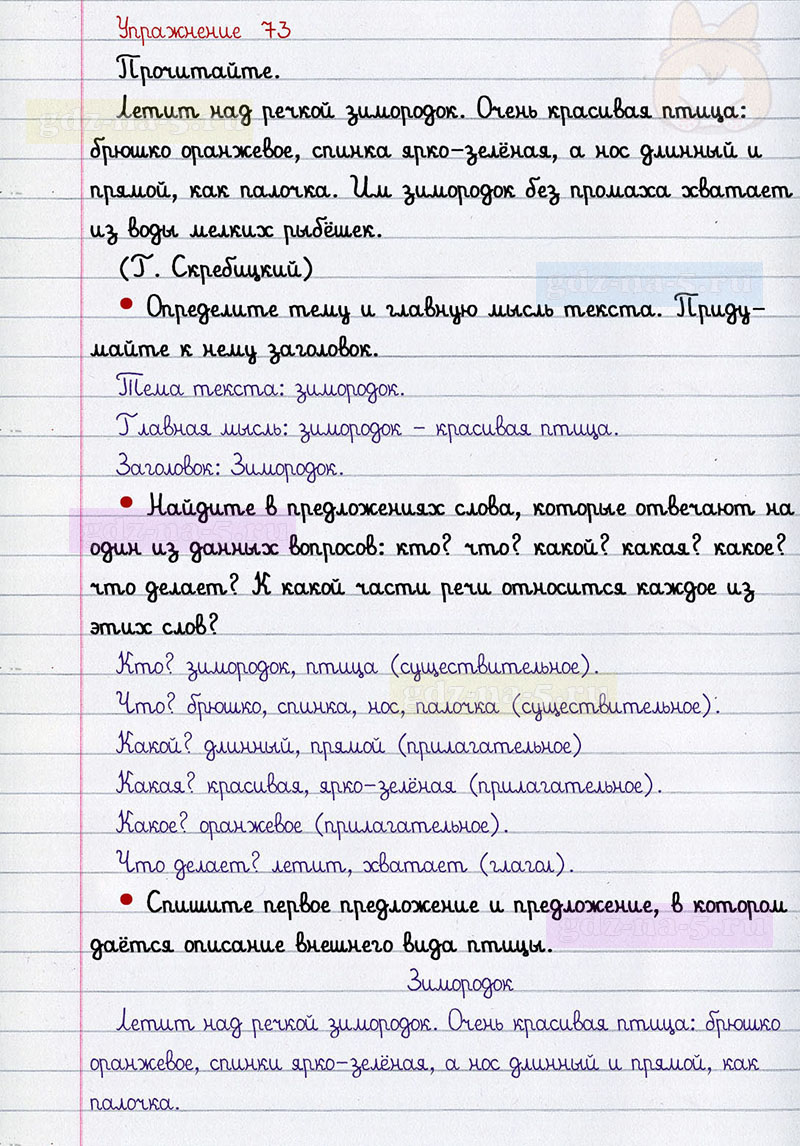 Упражнение 73
Прочитайте.
Летит над речкой зимородок. Очень красивая птица:
брюшко оранжевое, спинка ярко-зелёная, а нос длинный и
прямой, как палочка. Им зимородок без промаха хватает
из воды мелких рыбёшек.
(Г. Скребицкий)
• Определите тему и главную мысль текста. Приду-
майте к нему заголовок.
Тема текста: зимородок.
Главная мысль: зимородок – красивая птица.
Заголовок: Зимородок.
• Найдите в предложениях слова, которые отвечают на
один из данных вопросов: кто? что? какой? какая? какое?
что делает? К какой части речи относится каждое из
этих слов?
Кто? зимородок, птица (существительное).
Что? брюшко, спинка, нос, палочка (существительное).
Какой? длинный, прямой (прилагательное)
Какая? красивая, ярко-зелёная (прилагательное).
Какое? оранжевое (прилагательное).
Что делает? летит, хватает (глагол).
• Спишите первое предложение и предложение, в котором
даётся описание внешнего вида птицы.
Зимородок
Летит над речкой зимородок. Очень красивая птица: брюшко
оранжевое, спинки ярко-зелёная, а нос длинный и прямой, как
палочка.
gdz-na-5.ru
gdz-na-5.ru
gdz-na-5.ru
gdz-na-5.ru
gdz-na-5.ru